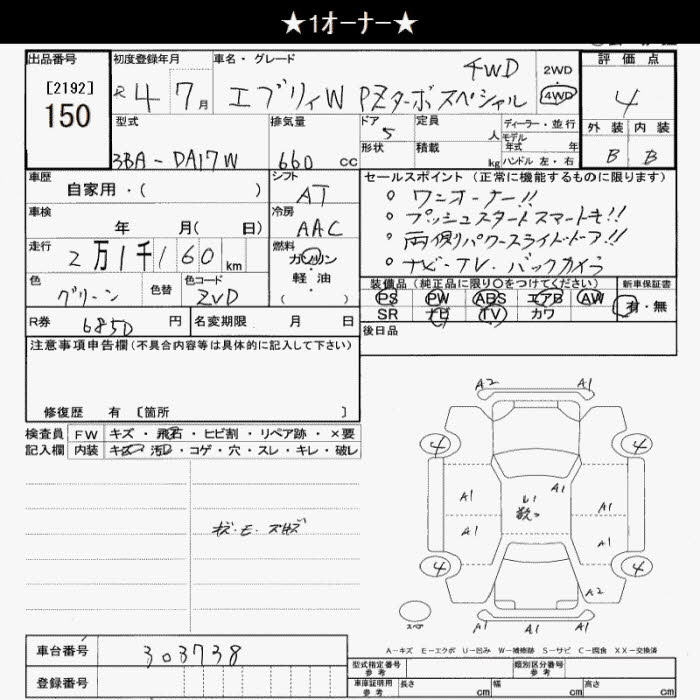 ★1オーナー★
出品番号
[2192]
150
初度登録年月
R 4 7月
車名・グレード
エブリィW PZターボスペシャル 4WD
2WD
4WD
評価点
4
外装 内装
B B
型式
3BA-DA17W
排気量
660 cc
ドア
5
形状
定員 人
積載 kg
ディーラー・並行
モデル
年式 年
ハンドル 左・右
車歴
自家用・( )
シフト
AT
車検
年 月( 日)
冷房
AAC
走行
2万1千160 km
燃料
ガソリン
・
軽油
( )
色
グリーン
色替
色コード
ZVD
R券
6850 円
名変期限 月 日
セールスポイント(正常に機能するものに限ります)
○ ワンオーナー!!
○ プッシュスタートスマートキー!!
○ 両側パワースライドドア!!
○ ナビ・TV・バックカメラ
装備品(純正品に限り○をつけてください)
PS PW ABS エアB AW
SR ナビ TV カワ
新車保証書
有・無
後日品
注意事項申告欄(不具合内容等は具体的に記入して下さい)
修復歴 有 [箇所 ]
検査員 FW キズ・飛石・ヒビ割・リペア跡・×要
記入欄 内装 キズ・汚レ・コゲ・穴・スレ・キレ・破レ
A2 A1
4 4
A1 A1 A1
A1 A1
4 4
A2
A1 A1
スペア
A-キズ E-エクボ U-凹み W-補修跡 S-サビ C-腐食 XX-交換済
車台番号 303738
登録番号
型式指定番号
参考
類別区分番号
参考
車庫証明用
参考
長さ cm 幅 cm 高さ cm